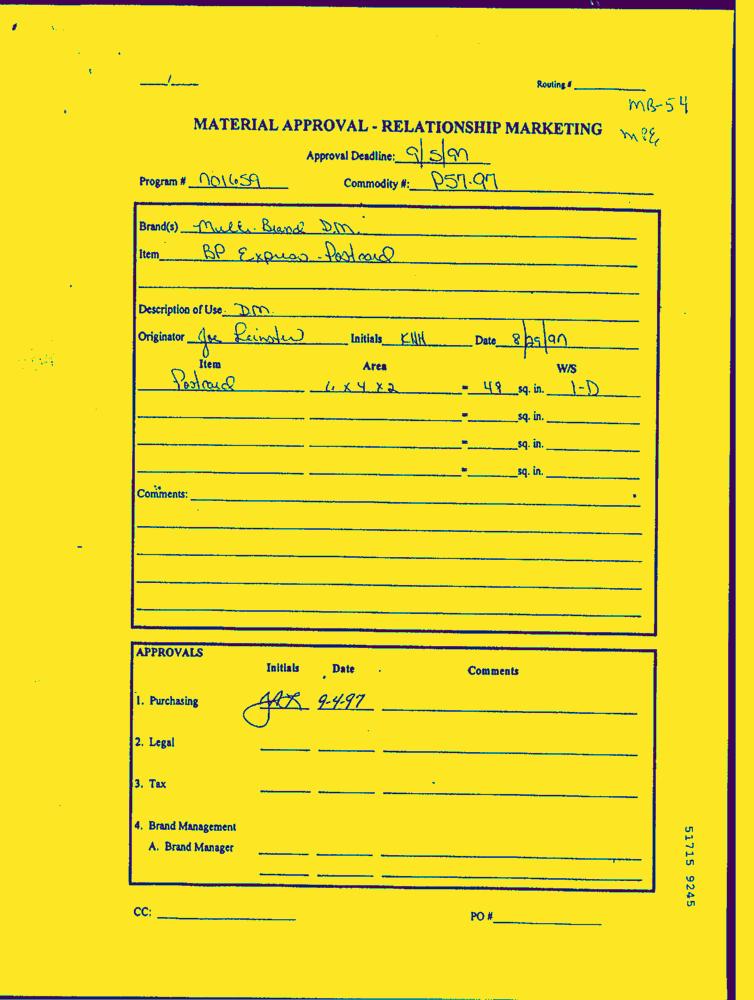 Routing #
MB-54
M&E
MATERIAL APPROVAL - RELATIONSHIP MARKETING
Approval Deadline: 9/5/97
Program # 701659 Commodity #: P57-97
Brand(s) Multi-Brand D.M.
Item BP Express - Postcard
Description of Use D.M.
Originator Joe Leinster Initials KHH Date 8/29/97
Item Area W/S
Postcard 6 x 4 x 2 = 48 sq. in. 1-D
= sq. in.
= sq. in.
= sq. in.
Comments:
APPROVALS
Initials Date Comments
1. Purchasing 9-4-97
2. Legal
3. Tax
4. Brand Management
A. Brand Manager
CC: PO #
51715 9245